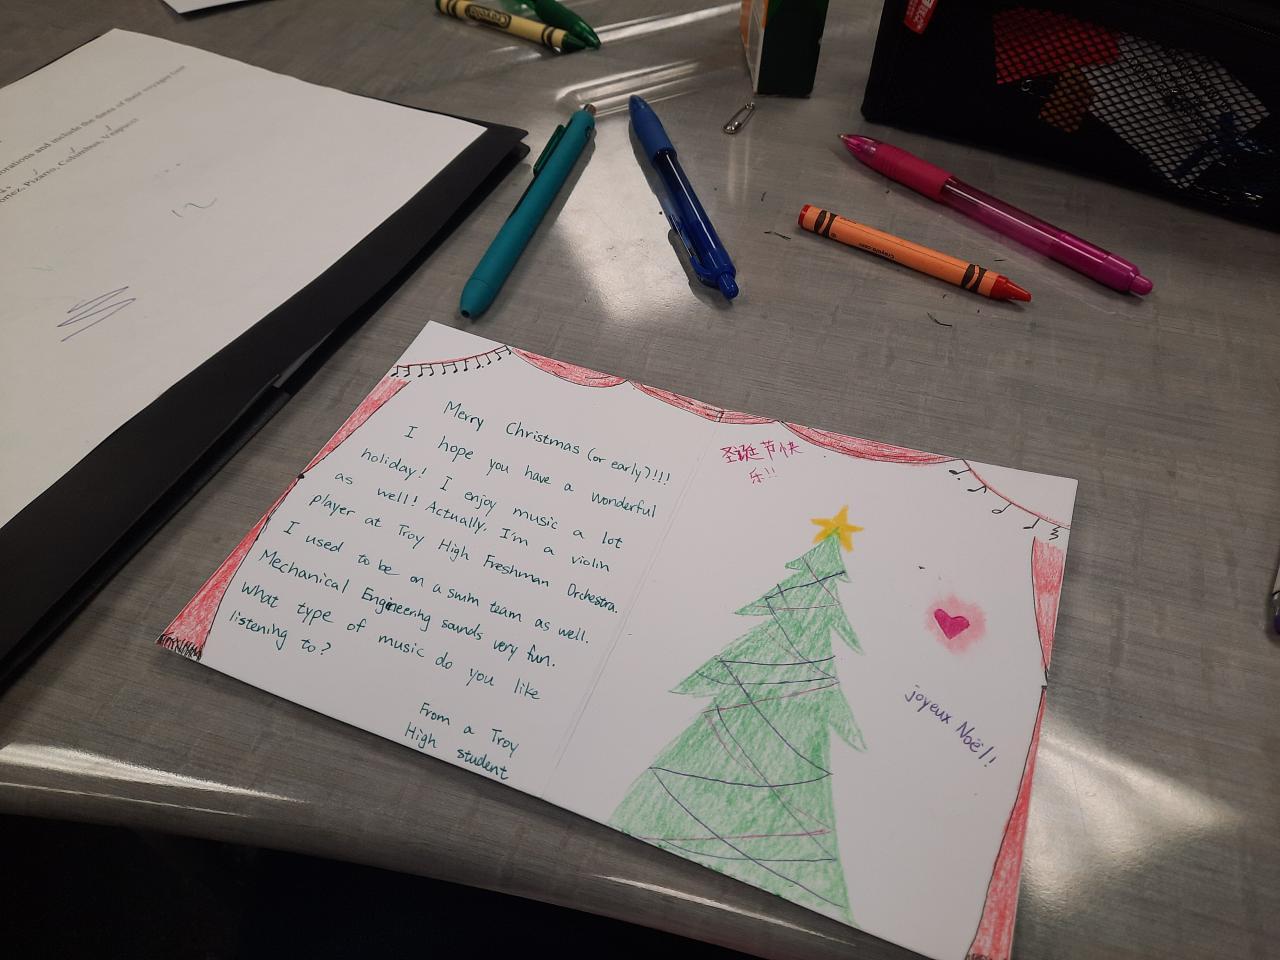 orations and include the dates of their voyages
Pizarro, Columbus, Vespucci
12
Crayola
Crayola.com
Merry Christmas (or early?)!!!
I hope you have a wonderful
holiday! I enjoy music a lot
as well! Actually, I'm a violin
player at Troy High Freshman Orchestra.
I used to be on a swim team as well.
Mechanical Engineering sounds very fun.
What type of music do you like
listening to?
From a Troy
High student
圣诞节快
乐!!
joyeux Noël!